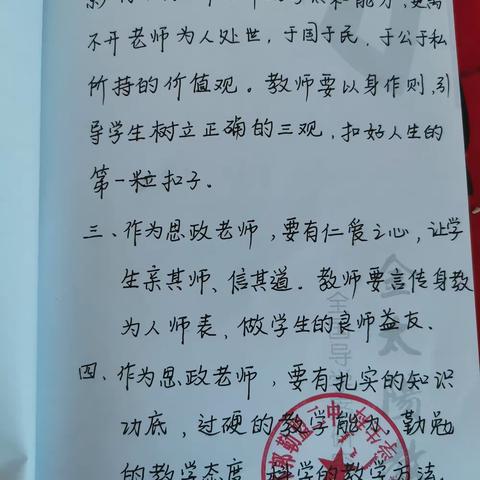 和能力,更离
不开老师为人处世,于国于民,于公于私
所持的价值观。教师要以身作则,引
导学生树立正确的三观,扣好人生的
第一粒扣子。
三、作为思政老师,要有仁爱之心,让学
生亲其师、信其道。教师要言传身教
为人师表,做学生的良师益友。
四、作为思政老师,要有扎实的知识
功底,过硬的教学能力,勤勉
的教学态度,科学的教学方法,